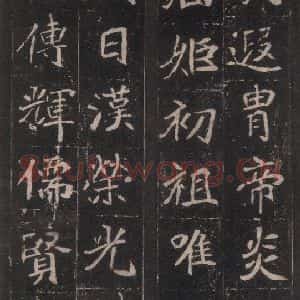 遐胄帝炎
姬初祖唯
日漢榮光
傳輝儒賢
Shufawang.cn